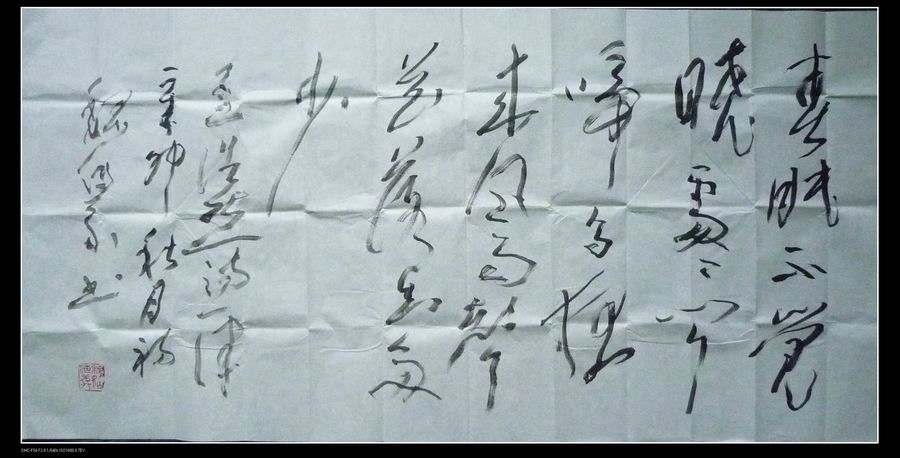 春眠不觉
晓处处闻
啼鸟夜
来风雨声
花落知多
少
孟浩然诗一律
辛卯秋月初
书